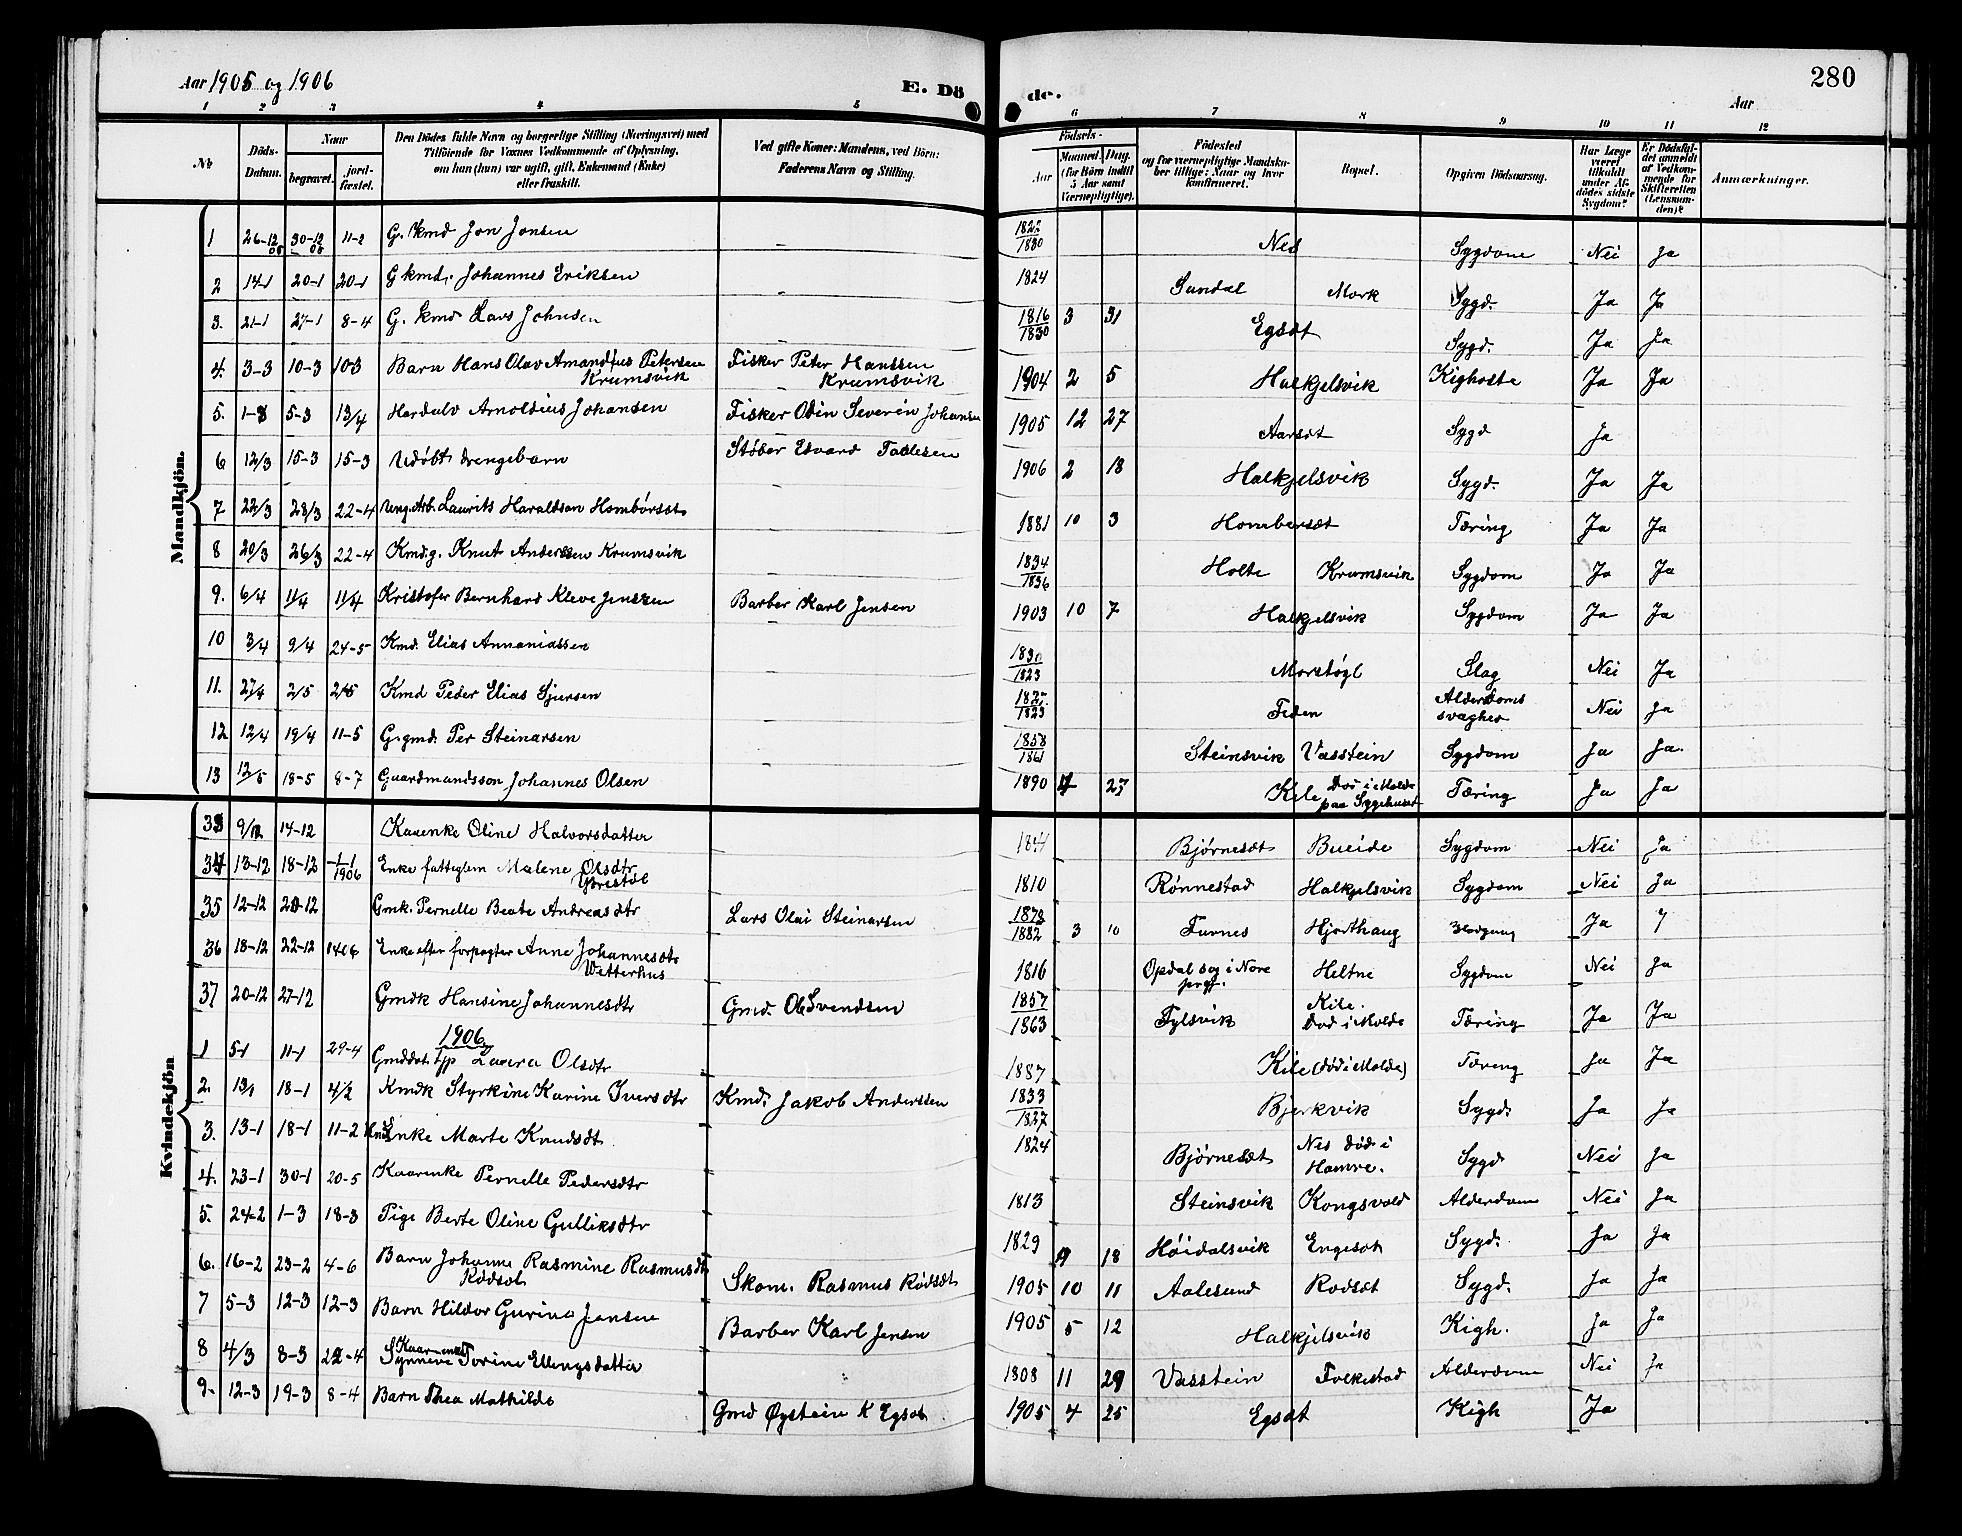 Aar 1905 og 1906
E. Dö de.
Aar
280
1 2 3 4 5 6 7 8 9 10 11 12
No
Döds-Datum.
Naar
begravet.
jord-fæstet.
Den Dödes fulde Navn og borgerlige Stilling (Næringsvei) med
Tilföiende for Voxnes Vedkommende af Oplysning,
om han (hun) var ugift, gift, Enkemand (Enke)
eller fraskilt.
Ved gifte Koner: Mandens, ved Börn:
Faderens Navn og Stilling.
Födsels-
Aar
Maaned. Dag.
(for Börn indtil
5 Aar samt
Værnepligtige).
Födested
og for værnepligtige Mandsku-
ber tillige: Naar og hvor
konfirmeret.
Bopæl.
Opgiven Dödsaarsag.
Har Læge
været
tilkaldt
under Af-
dödes sidste
Sygdom?
Er Dödsfal-
det anmeldt
af Vedkom-
mende for
Skifteretten
(Lensman-
den)?
Anmærkninger.
Mandkjön.
1 26-12 05 30-12 05 11-2 G. kmd Jon Jonsen 1822 1830 Nes Sygdom Nei Ja
2 14-1 20-1 20-1 G kmd. Johannes Eriksen 1824 Sundal Mork Sygd. Ja Ja
3. 21-1 27-1 8-4 G. kmd Lars Johnsen 1816 1830 3 31 Egsæt Sygd. Ja Ja
4. 3-3 10-3 10-3 Barn Hans Olav Amandius Petersen Krumsvik Fisker Peter Hanssen Krumsvik 1904 2 5 Halkjelsvik Kighoste Ja Ja
5. 1-3 5-3 13/4 Hardulv Arnoldius Johansen Fisker Odin Severin Johansen 1905 12 27 Aarsæt Sygd Ja
6 12/3 15-3 15-3 Udöbt drengebarn Støber Edvard Tollesen 1906 2 18 Halkjelsvik Sygd. Ja Ja
7 22/3 28/3 22-4 Ung. Arb. Laurits Haraldson Hombörsæt 1881 10 3 Hombersæt Tæring Ja Ja
8 20/3 26/3 22-4 Kmd.g. Knut Anderssen Krumsvik 1834 1836 Holte Krumsvik Sygdom Ja Ja
9. 6/4 11/4 11/4 Kristofer Bernhard Kleve Jenssen Barber Karl Jensen 1903 10 7 Halkjelsvik Sygdom Ja Ja
10 3/4 9/4 24-5 Kmd. Elias Annaniassen 1830 1823 Morstøyl Slag Nei Ja
11. 27/4 2/5 2/5 Kmd Peder Elias Sjursen 1823 Feden Alderdoms svaghed Nei Ja
12 12/4 19/4 11-5 G. gmd. Per Steinarsen 1858 1861 Steinsvik Vasstein Sygdom Ja Ja.
13 12/5 18-5 8-7 Gaardmandsson Johannes Olsen 1890 4 23 Kile Død i Molde paa Sygehuset Tæring Ja Ja
Kvindekjön
33 9/12 14-12 Kaarenke Oline Halvorsdatter 1844 Bjørnesæt Bueide Sygdom Nei Ja
34 13-12 18-12 1-1 1906 Enke fattiglem Malene Olsdtr 1810 Rønnestad Halkjelsvik Sygdom Nei Ja
35 12-12 20-12 Gmk. Pernelle Beate Andreasdtr Lars Olai Steinarsen 1878 1882 3 10 Furnes Hjorthaug Blodgang Ja
36 18-12 22-12 Enke efter forpagter Anne Johannesdtr Vatterhus 1816 Opdal sog i Nore prgj. Heltne Sygdom Nei Ja
37 20-12 27-12 Gmdk Hansine Johannesdtr Gmd. Ole Svendsen 1857 1863 Fylsvik Kile. Død i Molde Tæring Ja Ja
1906
1 5-1 11-1 29-4 Gmddat. Laura Olsdtr 1887 Kile (død i Molde) Tæring Ja Ja
2. 13/1 18-1 4/2 Kmdk Styrkine Karine Iversdtr Kmd. Jakob Anderssen 1833 1827 Bjerkvik Sygd. Ja Ja
3. 13-1 18-1 11-2 Kmd Enke Marte Knudsdt 1824 Bjørnesæt Nes død i Hamre. Sygd Nei Ja
4. 23-1 30-1 20-5 Kaarenke Pernelle Pedersdtr 1813 Steinsvik Kongsvold Alderdom Nei Ja
5. 24-2 1-3 18-3 Pige Berte Oline Gulliksdtr 1829 9 18 Høidalsvik Engeset Sygd. Ja Ja
6. 16-2 23-2 4-6 Barn Johanne Rasmine Rasmusdt Rødset Skom. Rasmus Rødsæt 1905 10 11 Aalesund Rodsæt Sygd. Ja Ja
7 5-3 12-3 12-3 Barn Hildor Gurina Jensen Barber Karl Jensen 1905 5 12 Halkjelsvik Kigh. Ja Ja
8 4/3 8-3 22-4 Kaarenke Synneve Torine Ellingsdatter 1808 11 29 Vasstein Folkestad Alderdom Nei Ja
9. 12-3 19-3 8-4 Barn Thea Mathilde Gmd Øystein K Egset 1905 4 25 Egsæt Kigh Ja